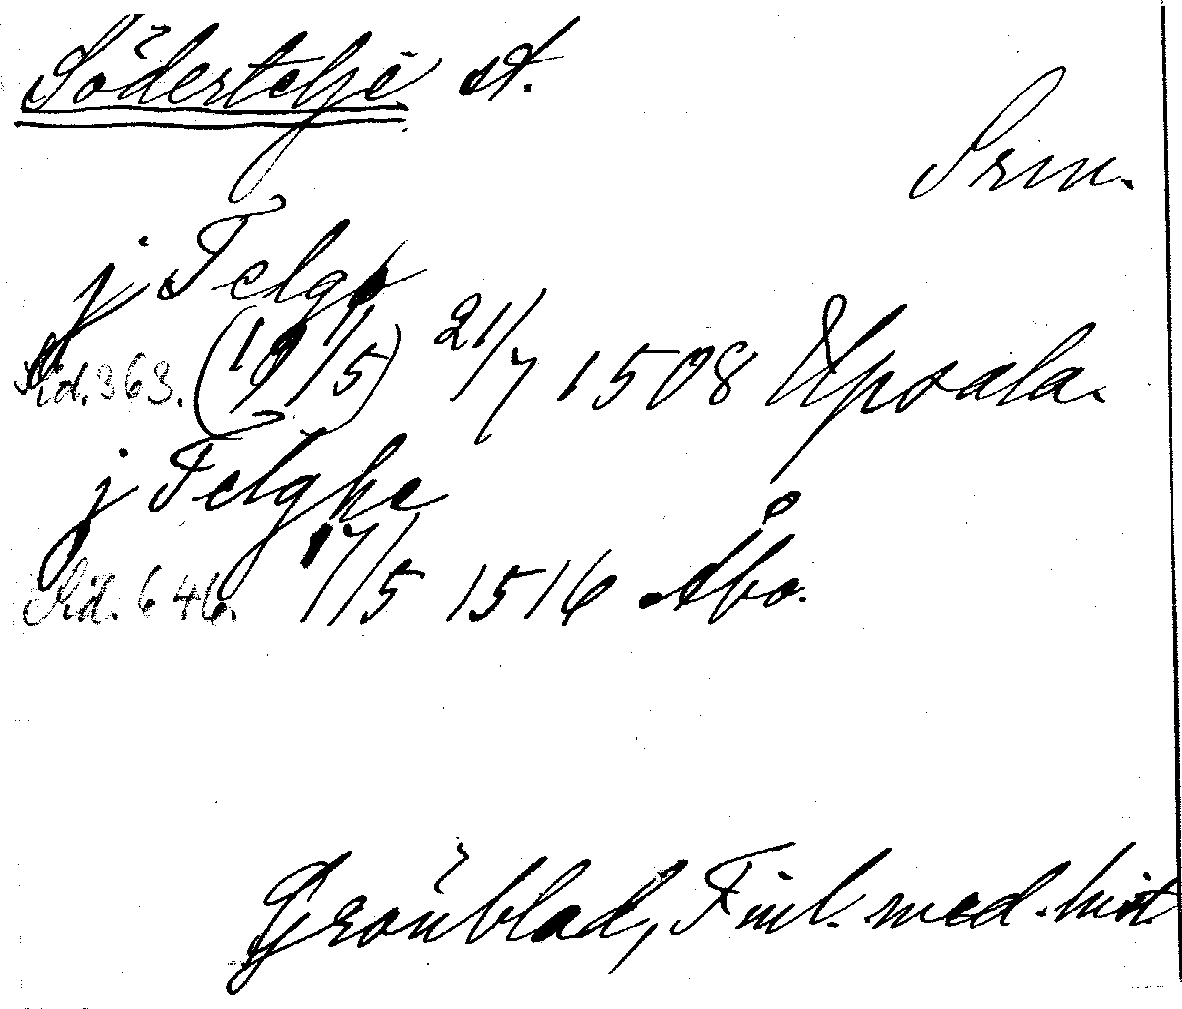 Södertelje st.
Srm.
j Telge
Sid. 363. (19/5) 21/7 1508 Upsala.
j Telghe
Sid. 646. 17/5 1516 Åbo.
Grönblad, Finl. med. hist